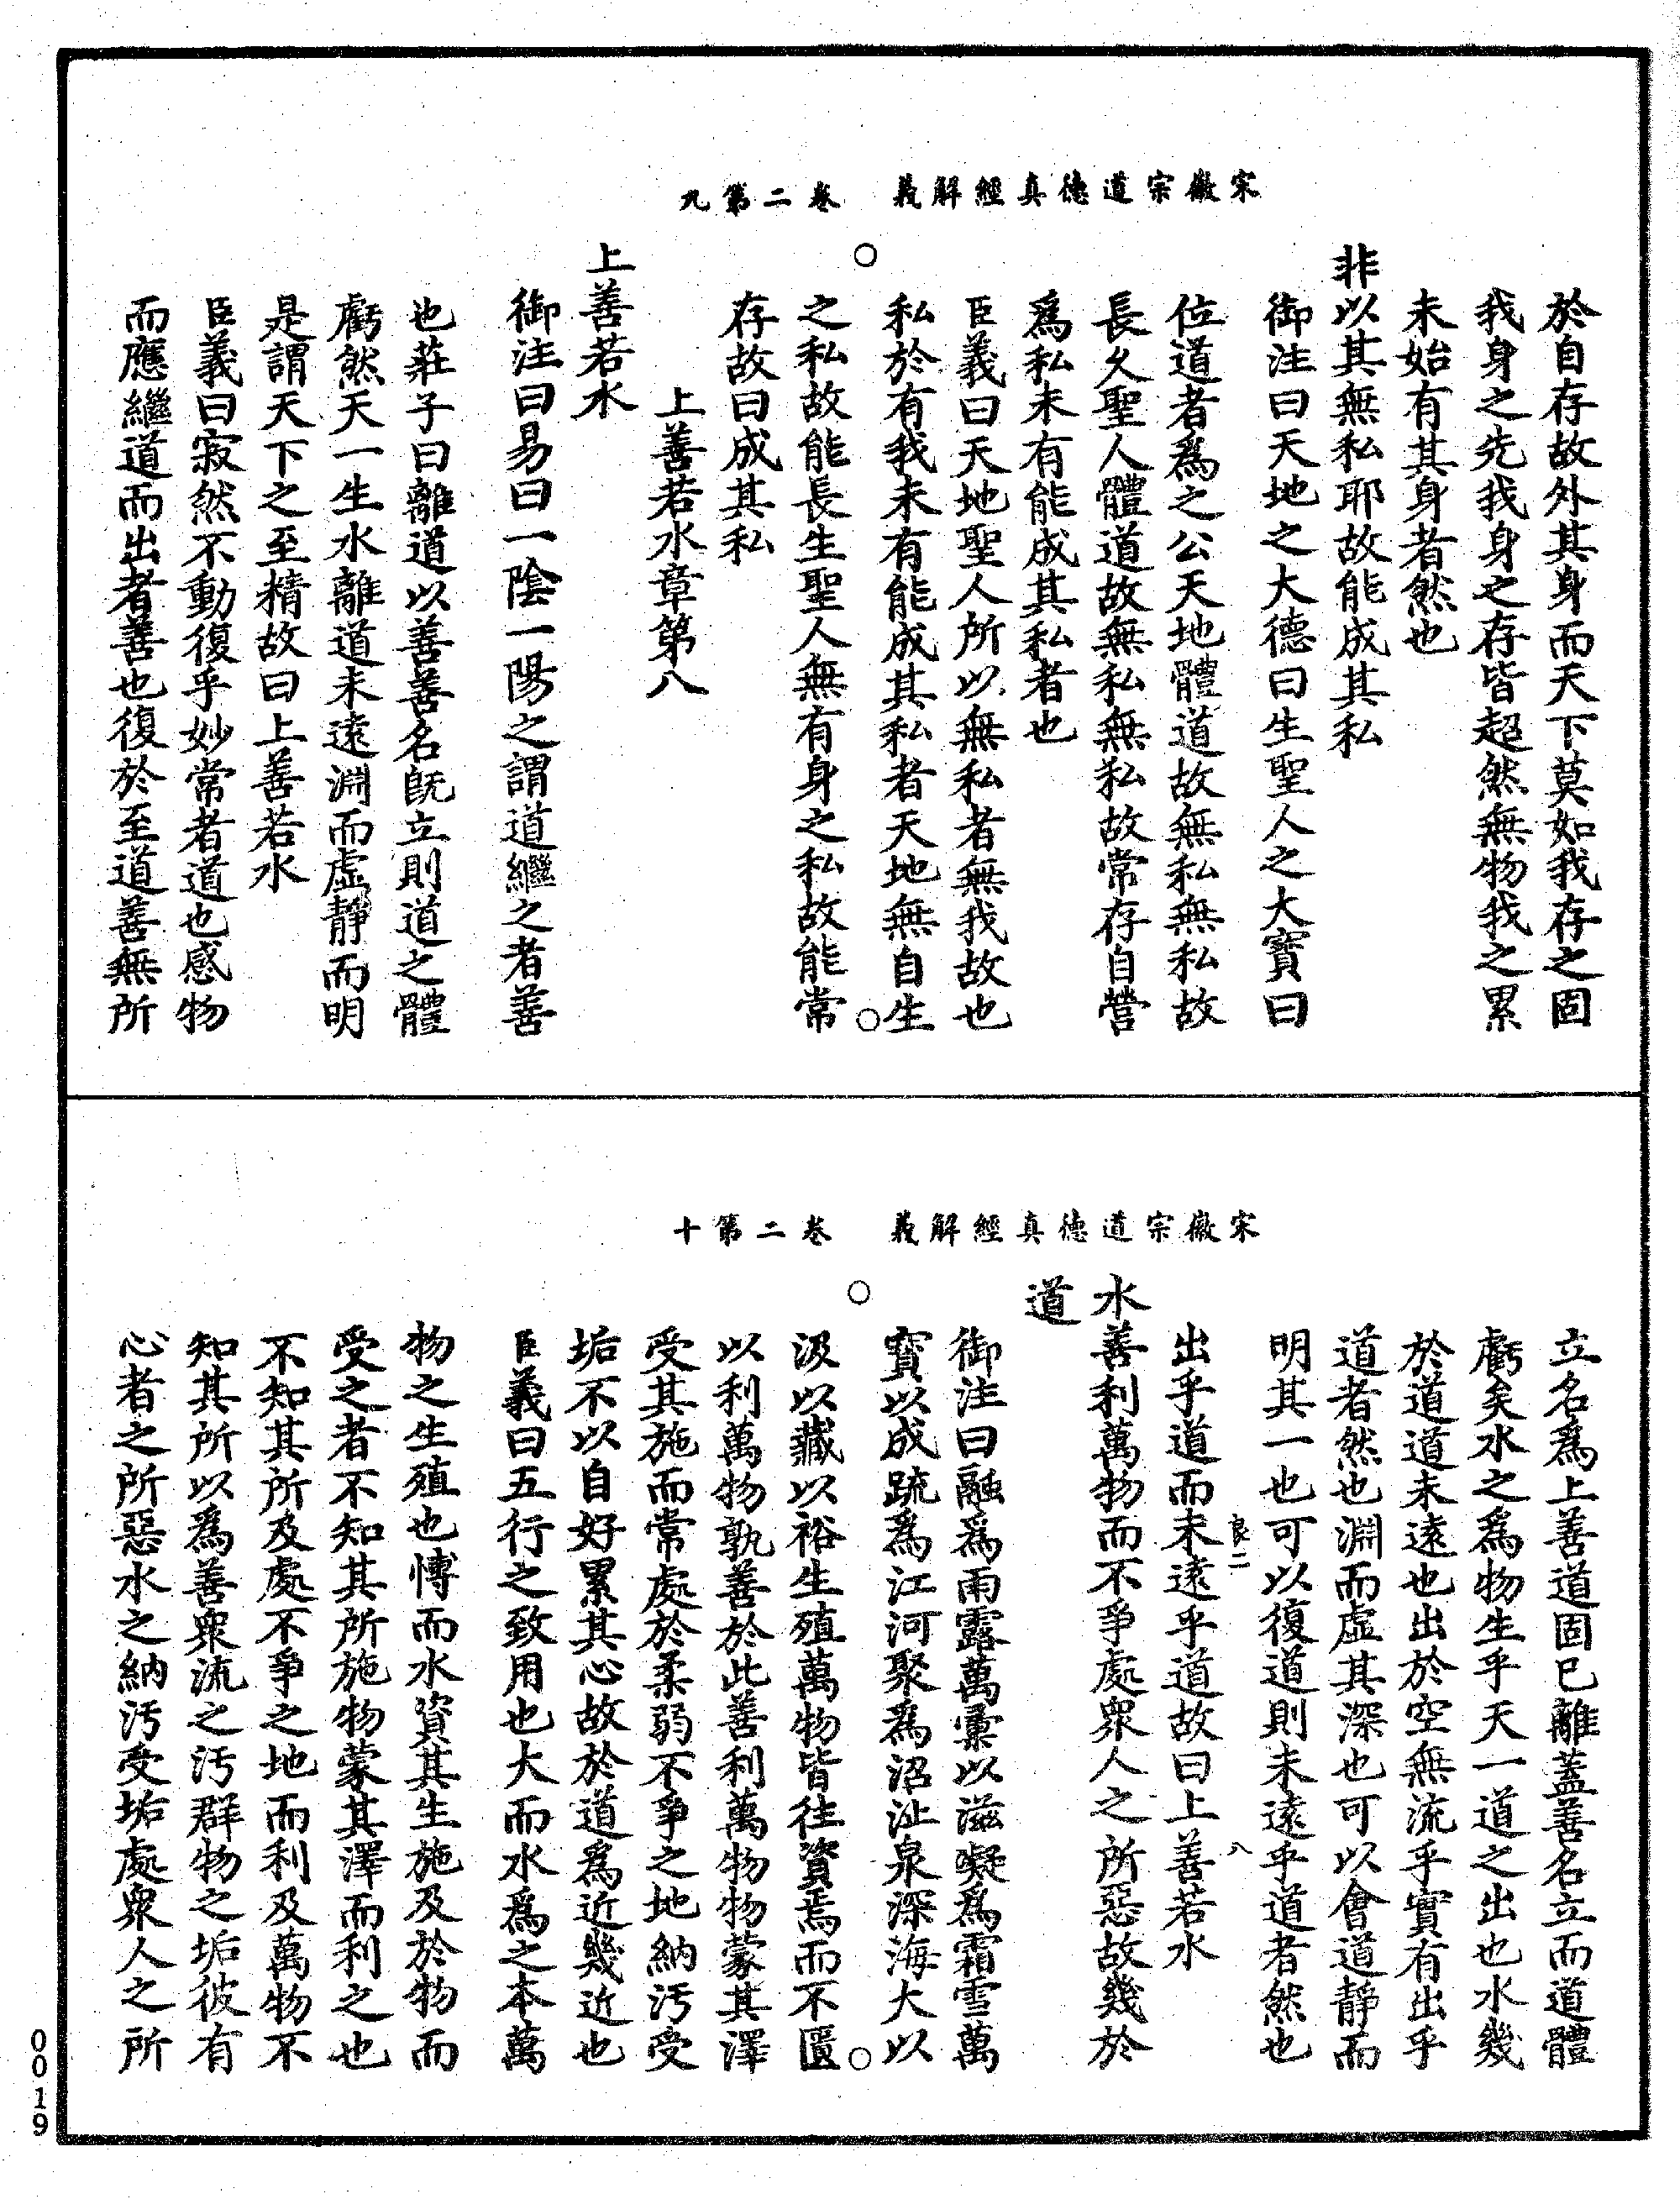 宋徽宗道德真經解義　卷二第九
於自存故外其身而天下莫如我存之固
我身之先我身之存皆超然無物我之累
未始有其身者然也
非以其無私耶故能成其私
御注曰天地之大德曰生聖人之大寶曰
位道者為之公天地體道故無私無私故
長久聖人體道故無私無私故常存自營
為私未有能成其私者也
臣義曰天地聖人所以無私者無我故也
私於有我未有能成其私者天地無自生
之私故能長生聖人無有身之私故能常
存故曰成其私
上善若水章第八
上善若水
御注曰易曰一陰一陽之謂道繼之者善
也莊子曰離道以善善名既立則道之體
虧然天一生水離道未遠淵而虛靜而明
是謂天下之至精故曰上善若水
臣義曰寂然不動復乎妙常者道也感物
而應繼道而出者善也復於至道善無所
宋徽宗道德真經解義　卷二第十
立名為上善道固已離蓋善名立而道體
虧矣水之為物生乎天一道之出也水幾
於道道未遠也出於空無流乎實有出乎
道者然也淵而虛其深也可以會道靜而
明其一也可以復道則未遠乎道者然也
良二　八
出乎道而未遠乎道故曰上善若水
水善利萬物而不爭處衆人之所惡故幾於
道
御注曰融為雨露萬彙以滋凝為霜雪萬
寶以成疏為江河聚為沼沚泉深海大以
汲以藏以裕生殖萬物皆往資焉而不匱
以利萬物孰善於此善利萬物物蒙其澤
受其施而常處於柔弱不爭之地納汚受
垢不以自好累其心故於道為近幾近也
臣義曰五行之致用也大而水為之本萬
物之生殖也慱而水資其生施及於物而
受之者不知其所施物蒙其澤而利之也
不知其所及處不爭之地而利及萬物不
知其所以為善衆流之汚群物之垢彼有
心者之所惡水之納汚受垢處衆人之所
0019